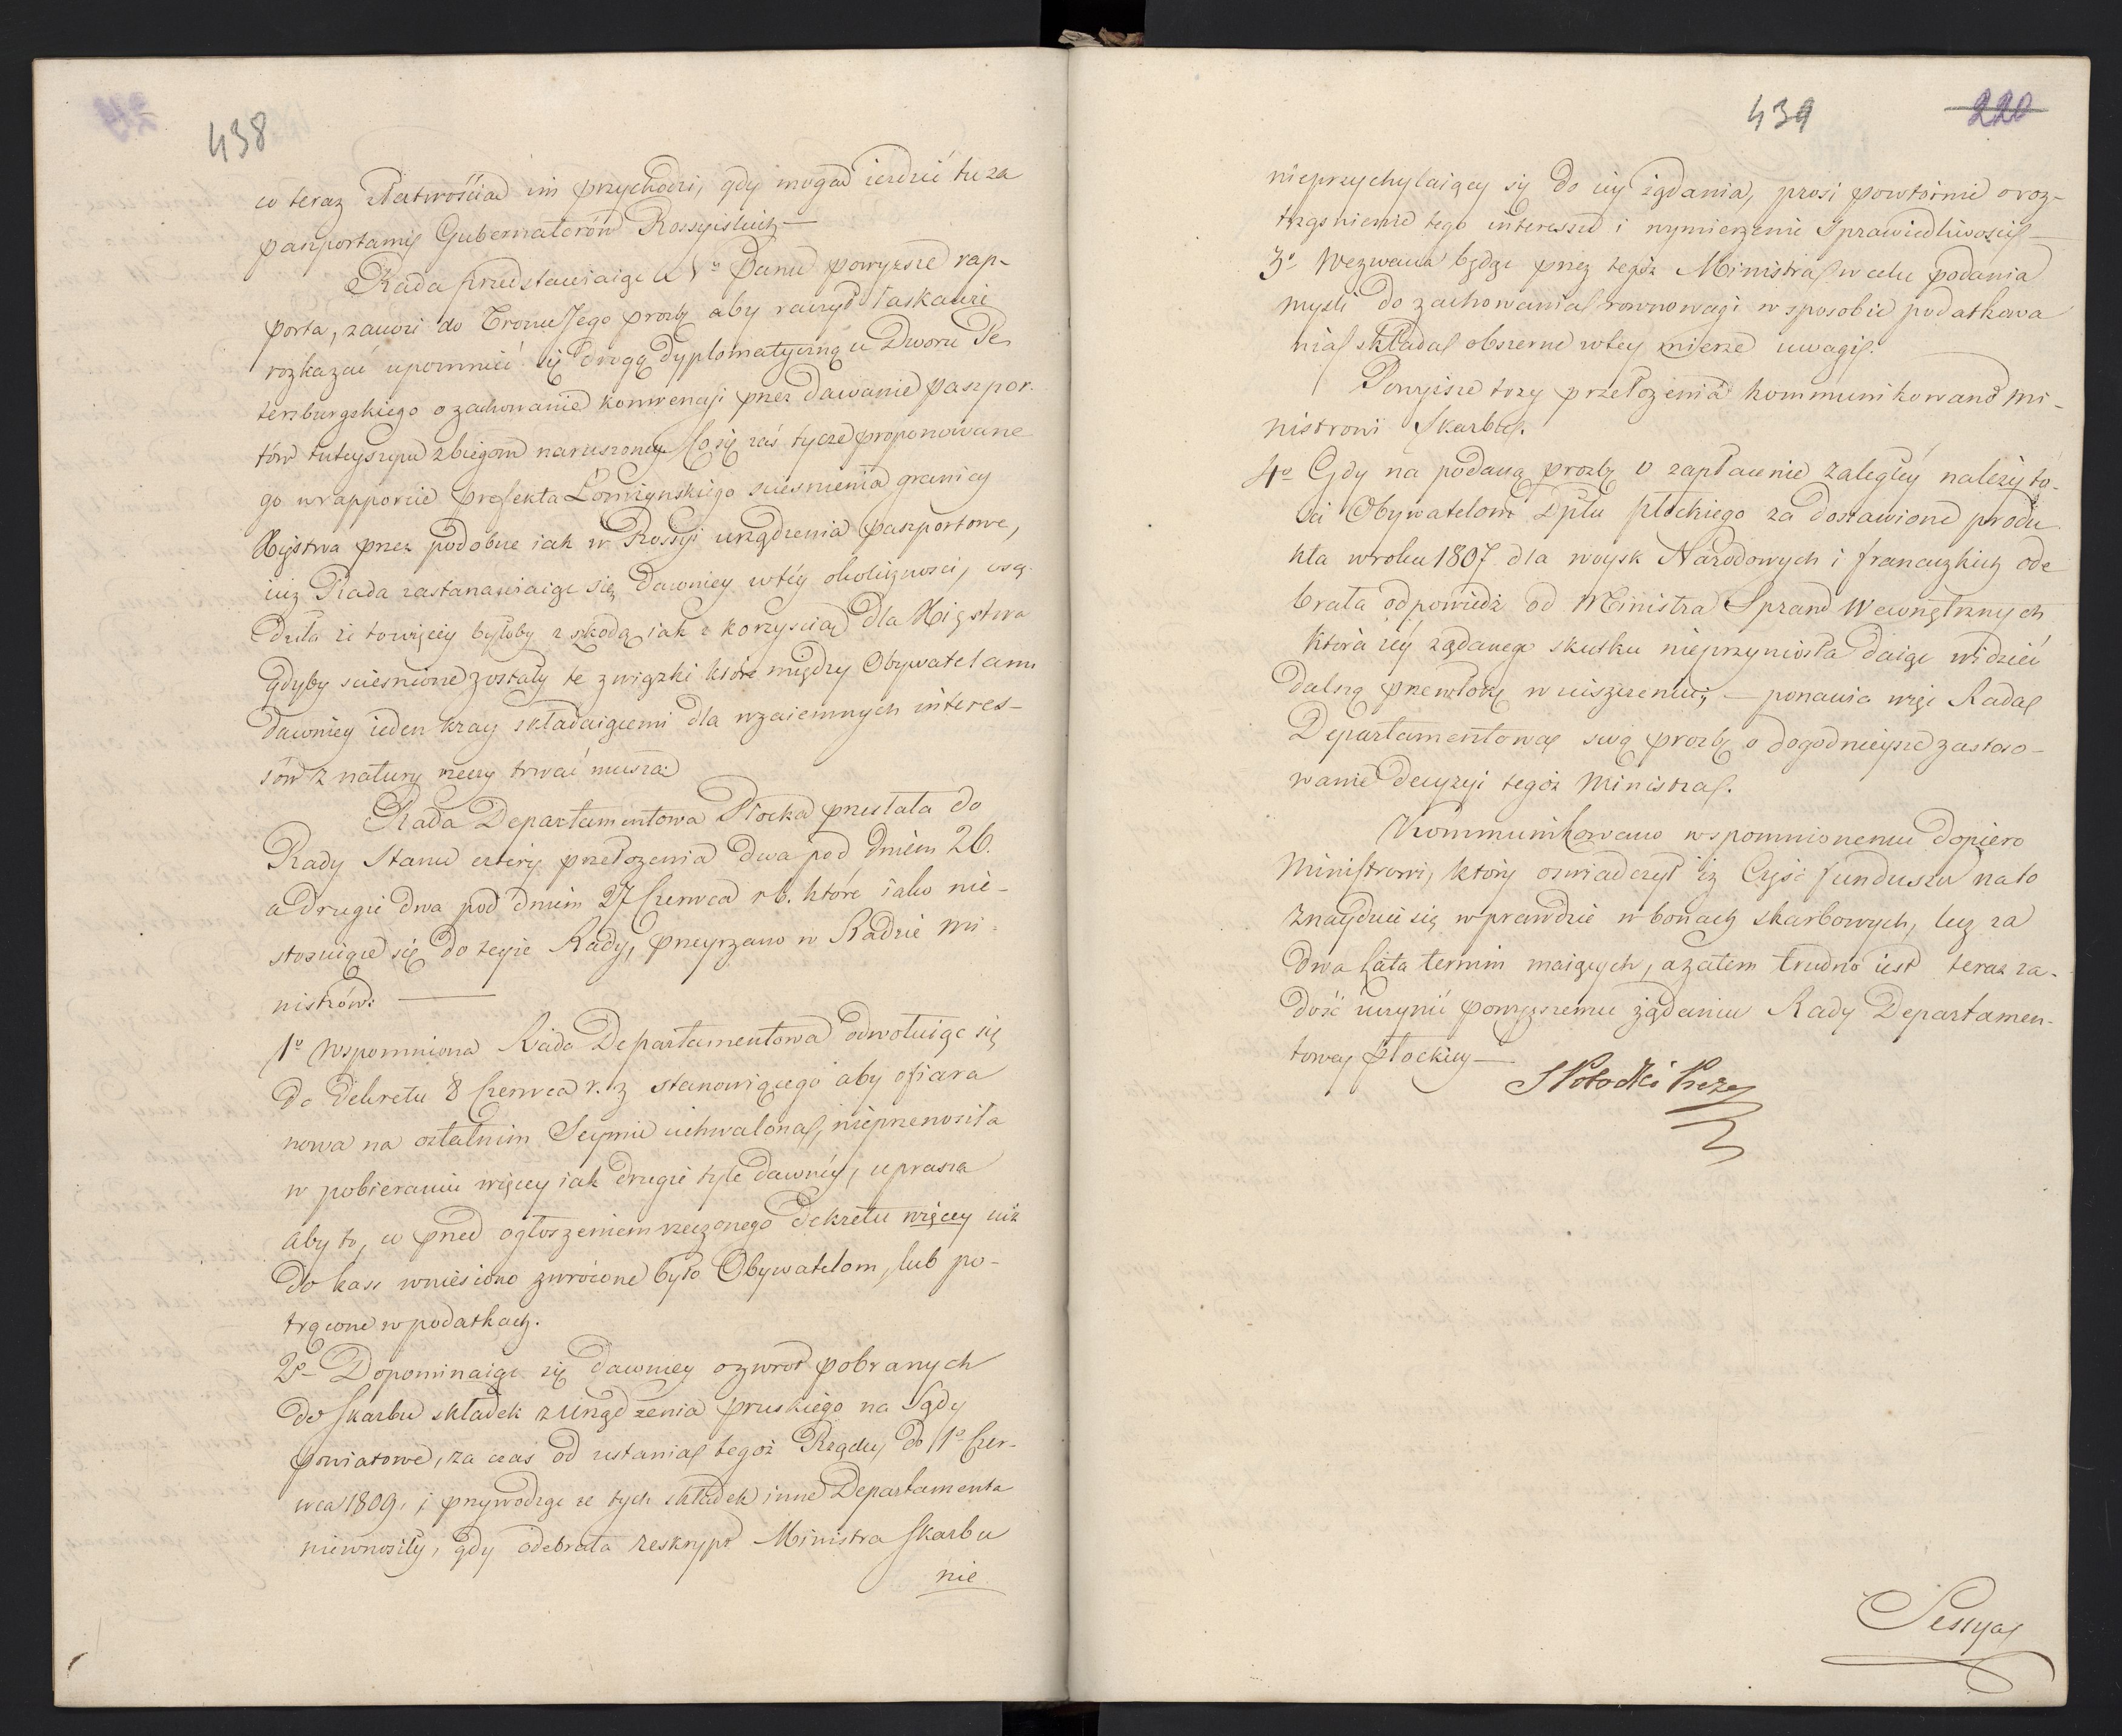 438
co teraz z łatwością im przychodzi, gdy mogą ieździć tu za
paszportami Gubernatorów Rossyiskich —
Rada przedstawiaiąc W. K. Panu powyższe rap-
porta, zanosi do Tronu Jego prozbę aby raczył łaskawie
rozkazać upomnieć się drogą dyplomatyczną u Dworu Pe-
tersburgskiego o zachowanie konwencyi przez dawanie paszpor-
tów tuteyszym zbiegom naruszoney. Co się zaś tycze proponowane
go w rapporcie Prefekta Łomżynskiego scieśnienia granicy
Xięstwa przez podobne iak w Rossyi urządzenia paszportowe,
iuż Rada zastanawiaiąc się dawniey w téy okoliczności, osą-
dziła że to więcéy byłoby z szkodą iak z korzyścią dla Xięstwa
gdyby scieśnione zostały te związki które między Obywatelami
dawniey ieden kray składaiącemi dla wzaiemnych interes-
sów z natury rzeczy trwać muszą.
Rada Departamentowa Płocka przesłała do
Rady Stanu cztery przełożenia dwa pod dniem 26.
a drugie dwa pod dniem 27 Czerwca r b. które iako nie-
stosuiące się do teyże Rady, przeyrzano w Radzie Mi-
nistrów. —
1º Wspomniona Rada Departamentowa odwołuiąc się
do Dekretu 8 Czerwca r. z stanowiącego aby ofiara
nowa na ostatnim Seymie uchwalona, nieprzenosiła
w pobieraniu więcey iak drugie tyle dawnéy, uprasza
aby to, co przed ogłoszeniem rzeczonego Dekretu więcey iuż
do kass wniesiono zwrócone było Obywatelom, lub po-
trącone w podatkach.
2º Dopominaiąc się dawniey o zwrot pobranych
do Skarbu składek z urządzenia pruskiego na Sądy
powiatowe, za czas od ustania tegoż Rządu, do 1º Czer-
wca 1809, i przywodząc że tych składek inne Departamenta
niewnosiły, gdy odebrała reskrypt Ministra Skarbu
nie
439 220
nieprzychylaiący się do iey żądania, prosi powtórnie o roz-
trząśnienie tego interessu i wymierzenie Sprawiedliwości —
3º Wezwana będąc przez tegóż Ministra w celu podania
mysli do zachowania rownowagi w sposobie podatkowa
nia składa obszerne w tey mierze uwagi.
Powyższe trzy przełożenia kommunikowano Mi-
nistrowi Skarbu.
4º Gdy na podaną prozbę o zapłacenie zaległéy należyto-
ści Obywatelom Dptu płockiego za dostawione produ
kta w roku 1807 dla woysk Narodowych i francuzkich ode
brała odpowiedź od Ministra Spraw Wewnętrznych
która iéy żądanego skutku nieprzyniosła daiąc widzieć
dalszą przewłokę w uiszczeniu; — ponawia więc Rada
Departamentowa swą prozbę o dogodnieysze zastoso-
wanie decyzyi tegóż Ministra.
Kommunikowano wspomnionemu dopiero
Ministrowi, który oswiadczył iż Część funduszu na to
znayduie się wprawdzie w bonach skarbowych, lecz za
dwa lata termin maiących, a zatem trudno iest teraz za-
dość uczynić powyższemu żądaniu Rady Departamen-
towey płockiey —
S Potocki Prezes
Sessya